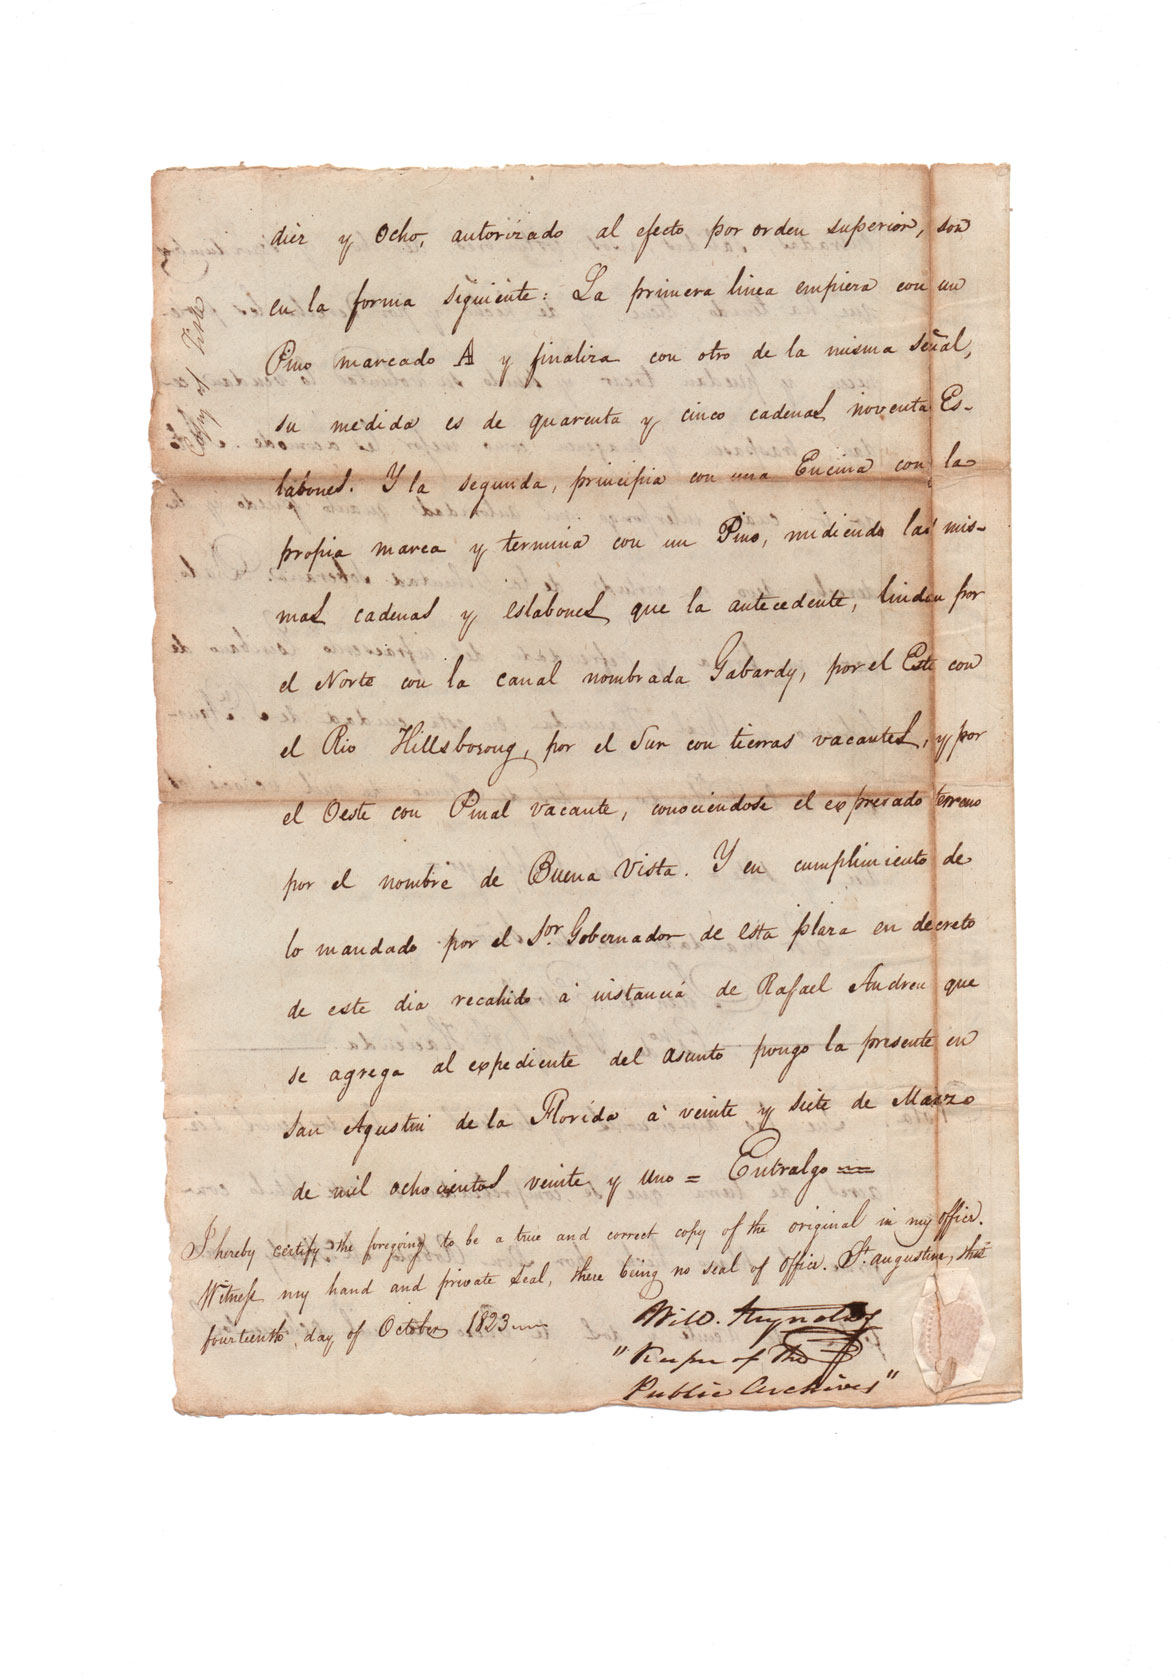 diez y Ocho, autorizado al efecto por orden superior, son
en la forma siguiente: La primera linea empieza con un
Pino marcado A y finaliza con otro de la misma señal,
su medida es de quarenta y cinco cadenas noventa Es-
labones. Y la segunda, principia con una Encina con la
propia marca y termina con un Pino, midiendo las mis-
mas cadenas y eslabones que la antecedente, lindan por
el Norte con la canal nombrada Gabardy, por el Este con
el Rio Hillsboroug, por el Sur con tierras vacantes, y por
el Oeste con Pinal vacante, conociendose el expresado terreno
por el nombre de Buena Vista. Y en cumplimiento de
lo mandado por el Sor. Gobernador de esta plaza en decreto
de este dia recahido á instancia de Rafael Andreu que
se agrega al expediente del asunto pongo la presente en
San Agustin de la Florida á veinte y siete de Marzo
de mil ochocientos veinte y uno = Entralgo =
I hereby certify the foregoing to be a true and correct copy of the original in my office.
Witness my hand and private Seal, there being no seal of office. St. augustine, this
fourteenth day of October 1823
Will. Reynolds
"Keeper of the
Public Archives"
Copy of Title